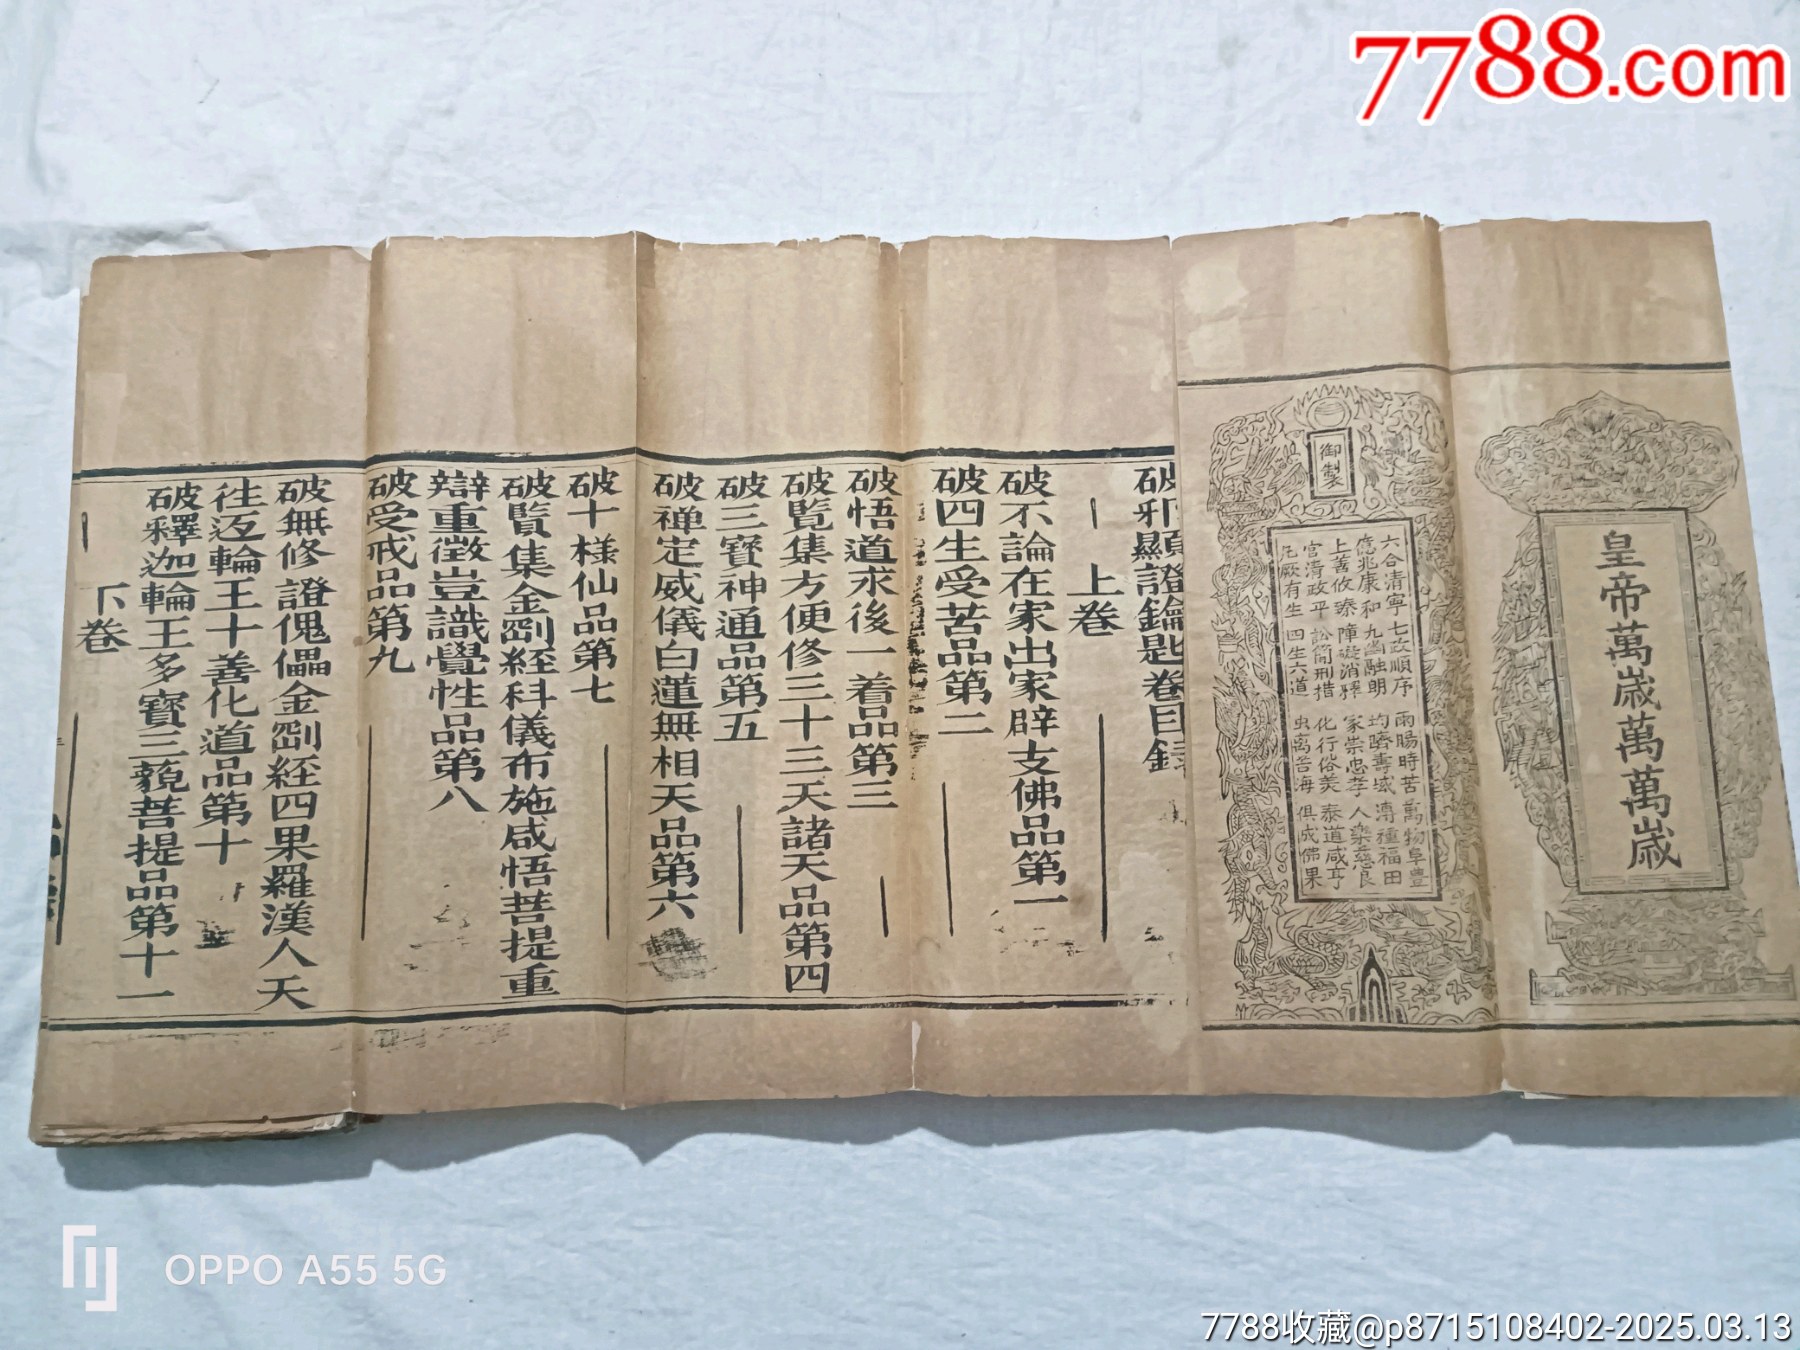 7788.com
皇帝萬歲萬萬歲
御製
六合清寧 七政順序 雨暘時若 萬物阜豐
億兆康和 九幽融朗 均躋壽域 溥種福田
上善攸臻 障礙消釋 家崇忠孝 人樂慈良
官清政平 訟簡刑措 化行俗美 泰道咸亨
凡厥有生 四生六道 虫离苦海 俱成佛果
破邪顯證鑰匙卷目録
上卷
破不論在家出家辟支佛品第一
破四生受苦品第二
破悟道求後一着品第三
破覧集方便修三十三天諸天品第四
破三寳神通品第五
破禅定威儀白蓮無相天品第六
破十様仙品第七
破覧集金剛経科儀布施咸悟菩提重
辯重徵豈識覺性品第八
破受戒品第九
破無修證傀儡金剛経四果羅漢人天
徃返輪王十善化道品第十
破釋迦輪王多寳三藐菩提品第十一
下卷
OPPO A55 5G
7788收藏@p8715108402-2025.03.13